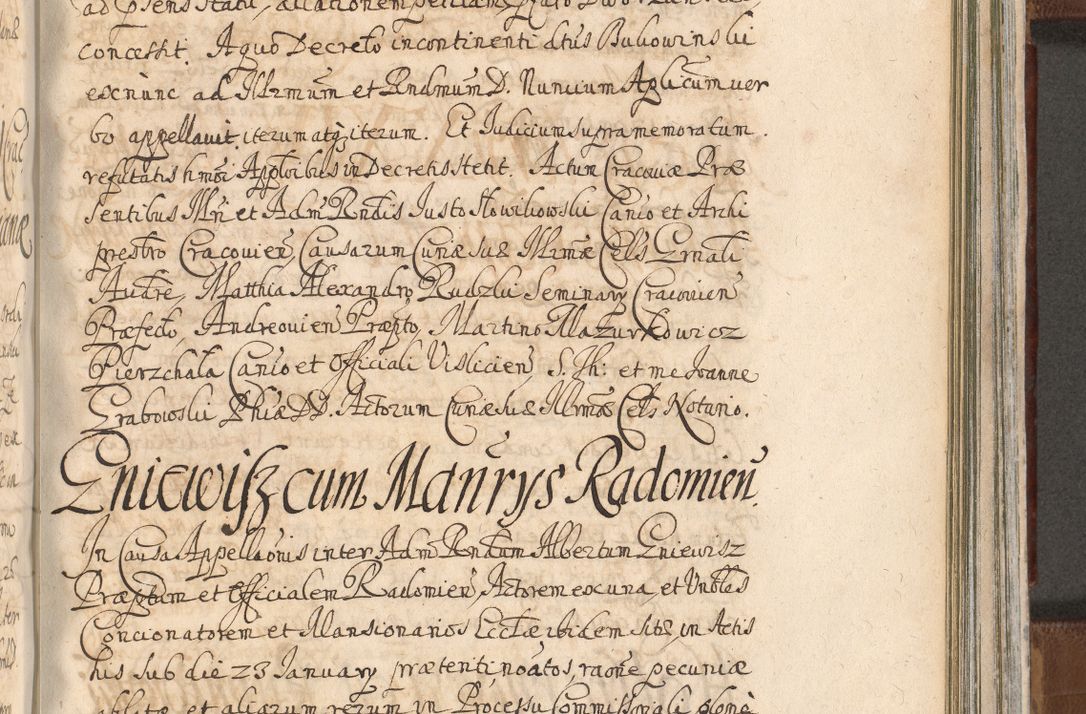 ad psens statu, allationem petitam, pfato Dworzan
concessit. A quo Decreto in continenti dtus Bukowinski
exnunc ad Illrmum et Rndmum D. Nuncium Aplicum ver
bo appellavit iterum atq iterum. Et Judicium supra memoratum
refutatis hmoi Applõibus in Decretis stetit. Actum Cracoviæ Præ
sentibus Mñ et Adm Rndis Justo Słowikowski Canco et Archi
presbro Cracovien, Causarum Curiæ suæ Illrmæ Cels Grnali
Audre, Matthia Alexandro Rudzki Seminary Cracovien
Præfecto, Andreovien Præpto, Martino Mazurkowicz
Pierzchała Canco et Officiali Vislicien, S. Th: et me Joanne
Grabowski Phiæ DD. Actorum Curiæ suæ Illrmæ Cels Notario.
Gniewisz cum Manrys Radomien
In Causa Appellaonis inter Adm Rndum Albertum Gniewisz
Præptum et Officialem Radomien, Actorem ex una, et Vnbles
Concionatorem et Mansionarios Ecclæ ibidem sitæ, in Actis
his sub die 23 January prætenti, noatos, raone pecuniæ
ablitæ et aliarum rerum in Processu Commissoriali